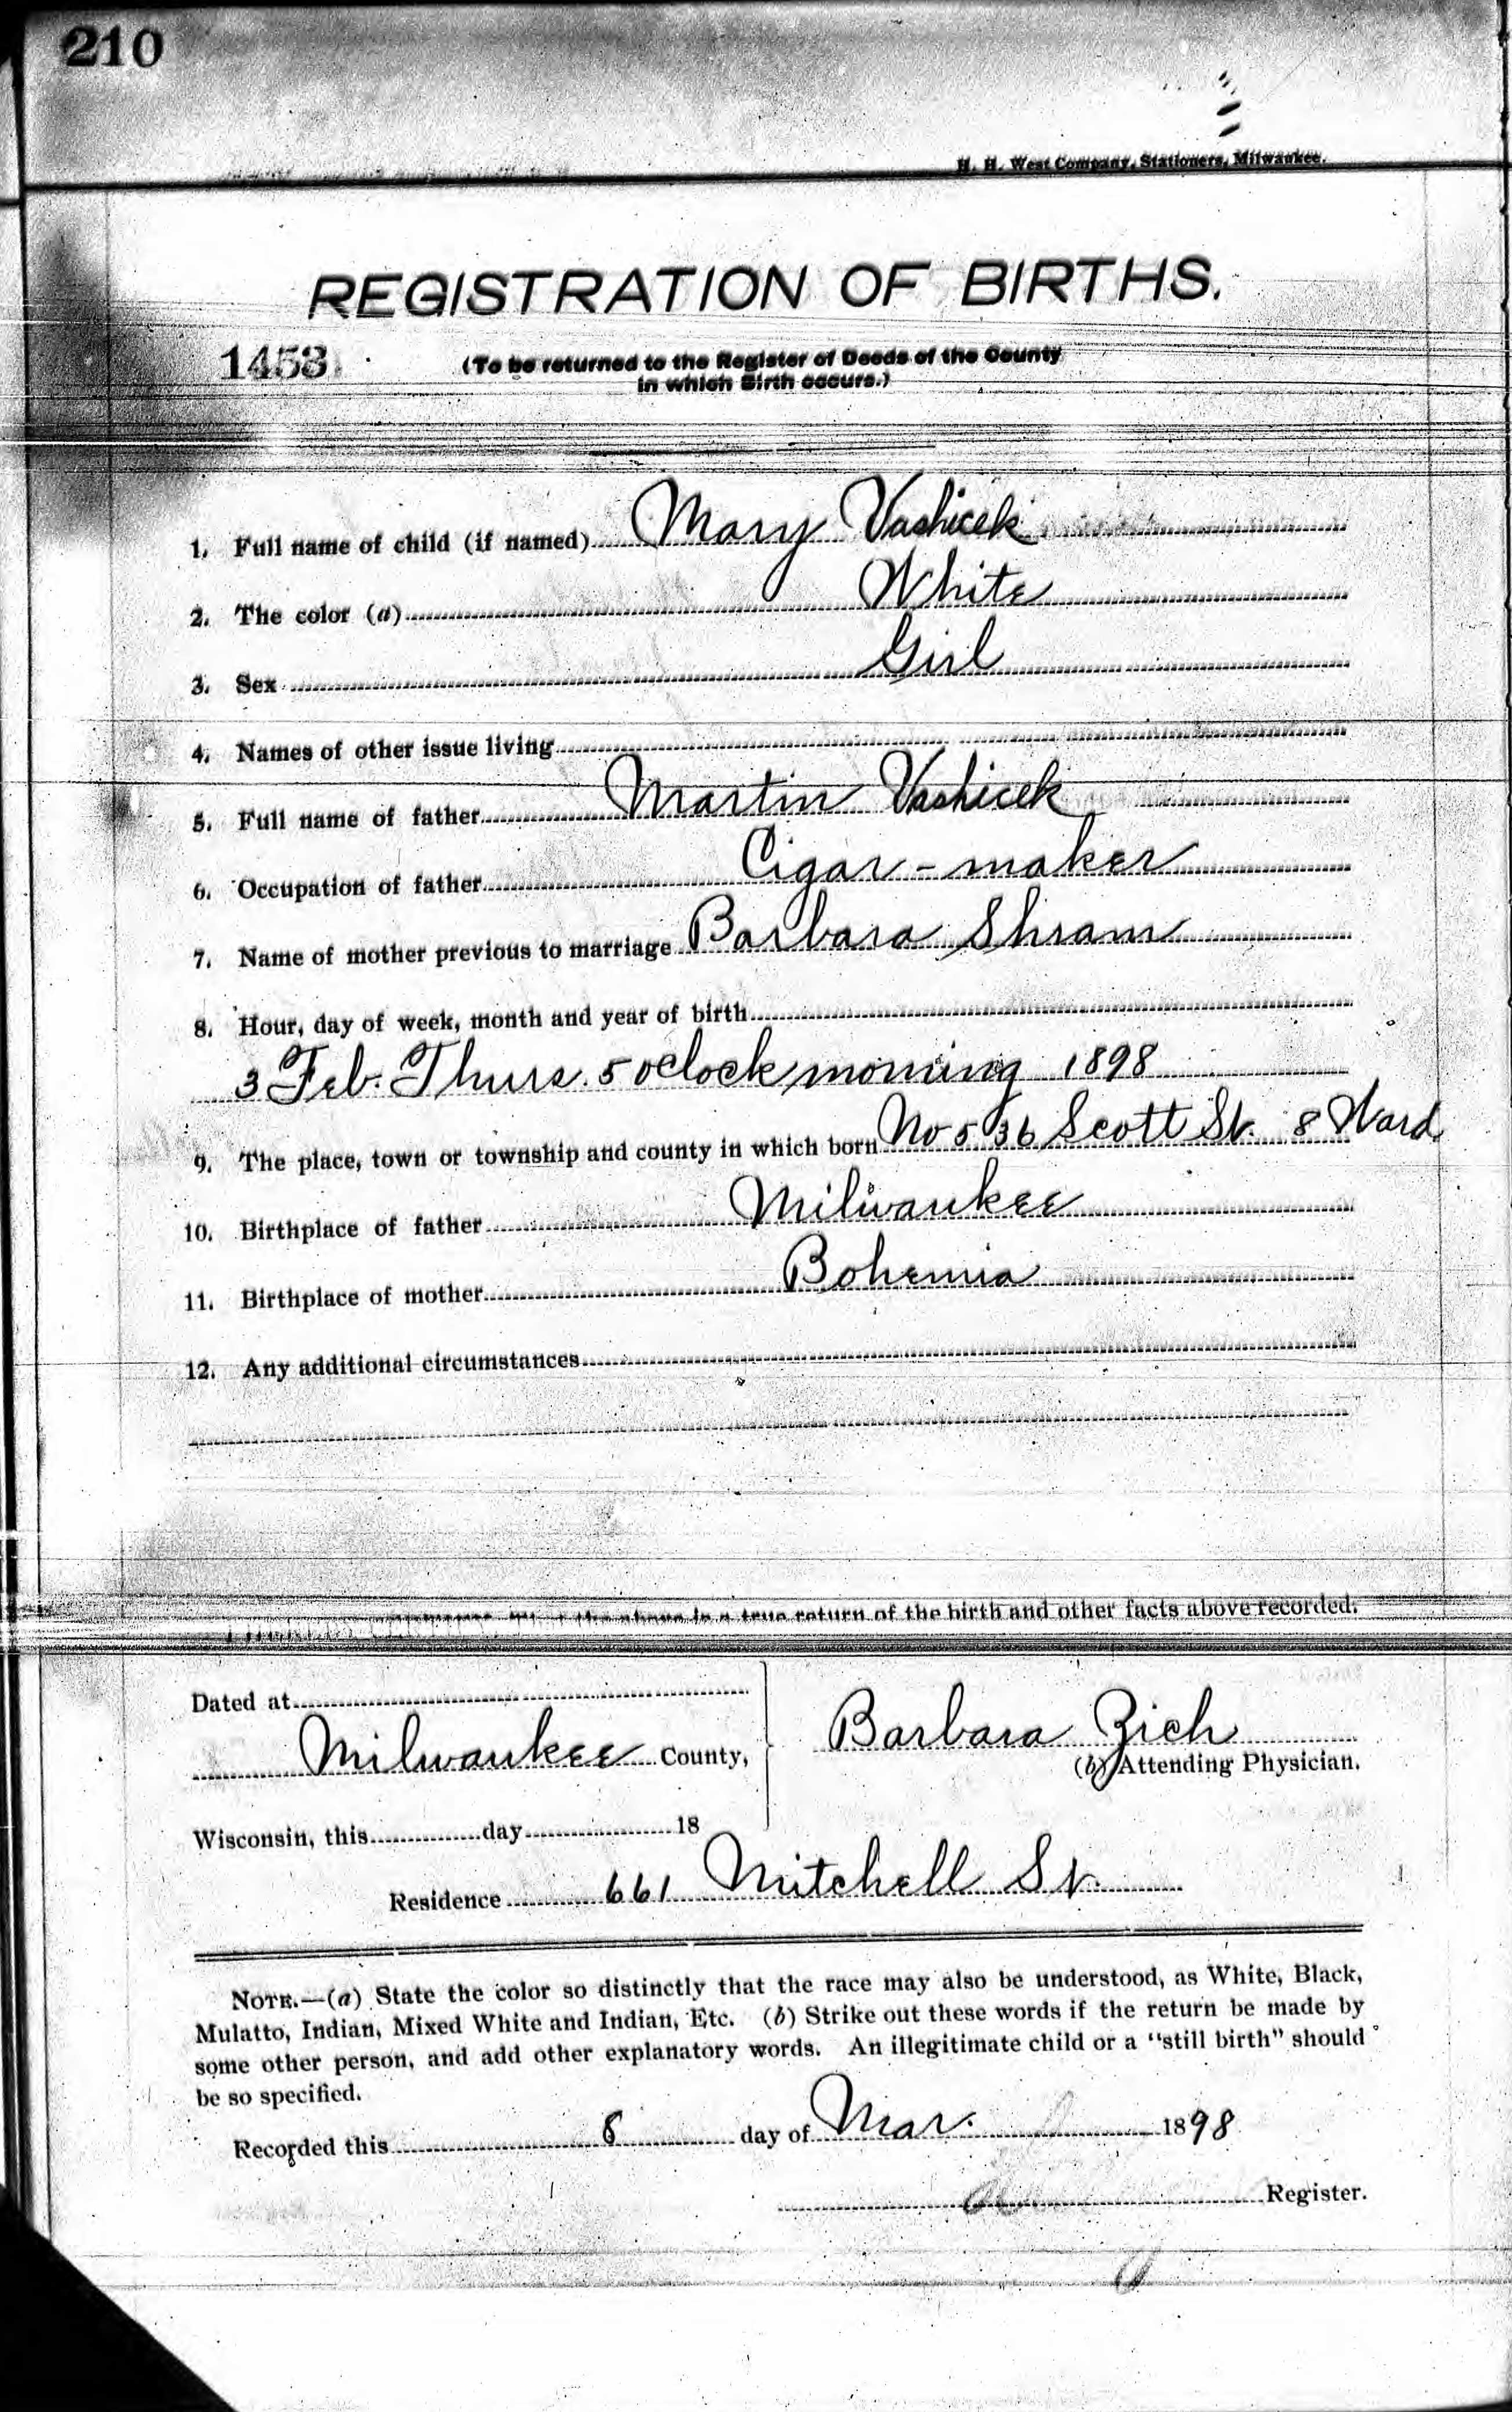 210
H. H. West Company, Stationers, Milwaukee.
REGISTRATION OF BIRTHS.
1453
(To be returned to the Register of Deeds of the County
in which Birth occurs.)
1. Full name of child (if named) Mary Vashicek
2. The color (a) White
3. Sex Girl
4. Names of other issue living
5. Full name of father Martin Vashicek
6. Occupation of father Cigar-maker
7. Name of mother previous to marriage Barbara Shram
8. Hour, day of week, month and year of birth
3 Feb. Thurs. 5 oclock morning 1898
9. The place, town or township and county in which born No 536 Scott St. 8 Ward.
10. Birthplace of father Milwaukee
11. Birthplace of mother Bohemia
12. Any additional circumstances
the above is a true return of the birth and other facts above recorded.
Dated at
Milwaukee County,
Barbara Zich
(b) Attending Physician.
Wisconsin, this day 18
Residence 661 Mitchell St.
NOTE.—(a) State the color so distinctly that the race may also be understood, as White, Black,
Mulatto, Indian, Mixed White and Indian, Etc. (b) Strike out these words if the return be made by
some other person, and add other explanatory words. An illegitimate child or a "still birth" should
be so specified.
Recorded this 8 day of Mar. 1898
Register.